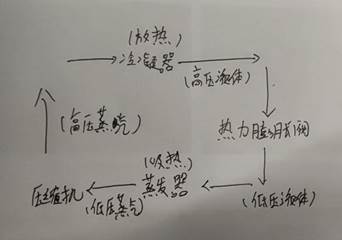 (放热)
冷凝器
(高压液体)
热力膨胀阀
(低压液体)
(吸热)
蒸发器
(低压蒸气)
压缩机
(高压蒸气)